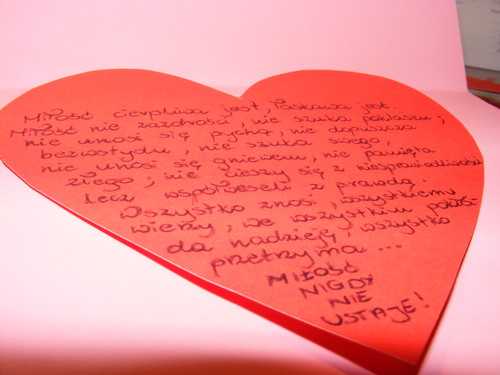 Miłość cierpliwa jest łaskawa jest.
Miłość nie zazdrości, nie szuka poklasku;
nie unosi się pychą, nie dopuszcza
bezwstydu, nie szuka swego,
nie unosi się gniewem, nie pamięta
złego; nie cieszy się z niesprawiedliwości
lecz współweseli z prawdą.
Wszystko znosi, wszystkiemu
wierzy, we wszystkim pokła-
da nadzieję, wszystko
przetrzyma ...
MIŁOŚĆ
NIGDY
NIE
USTAJE!